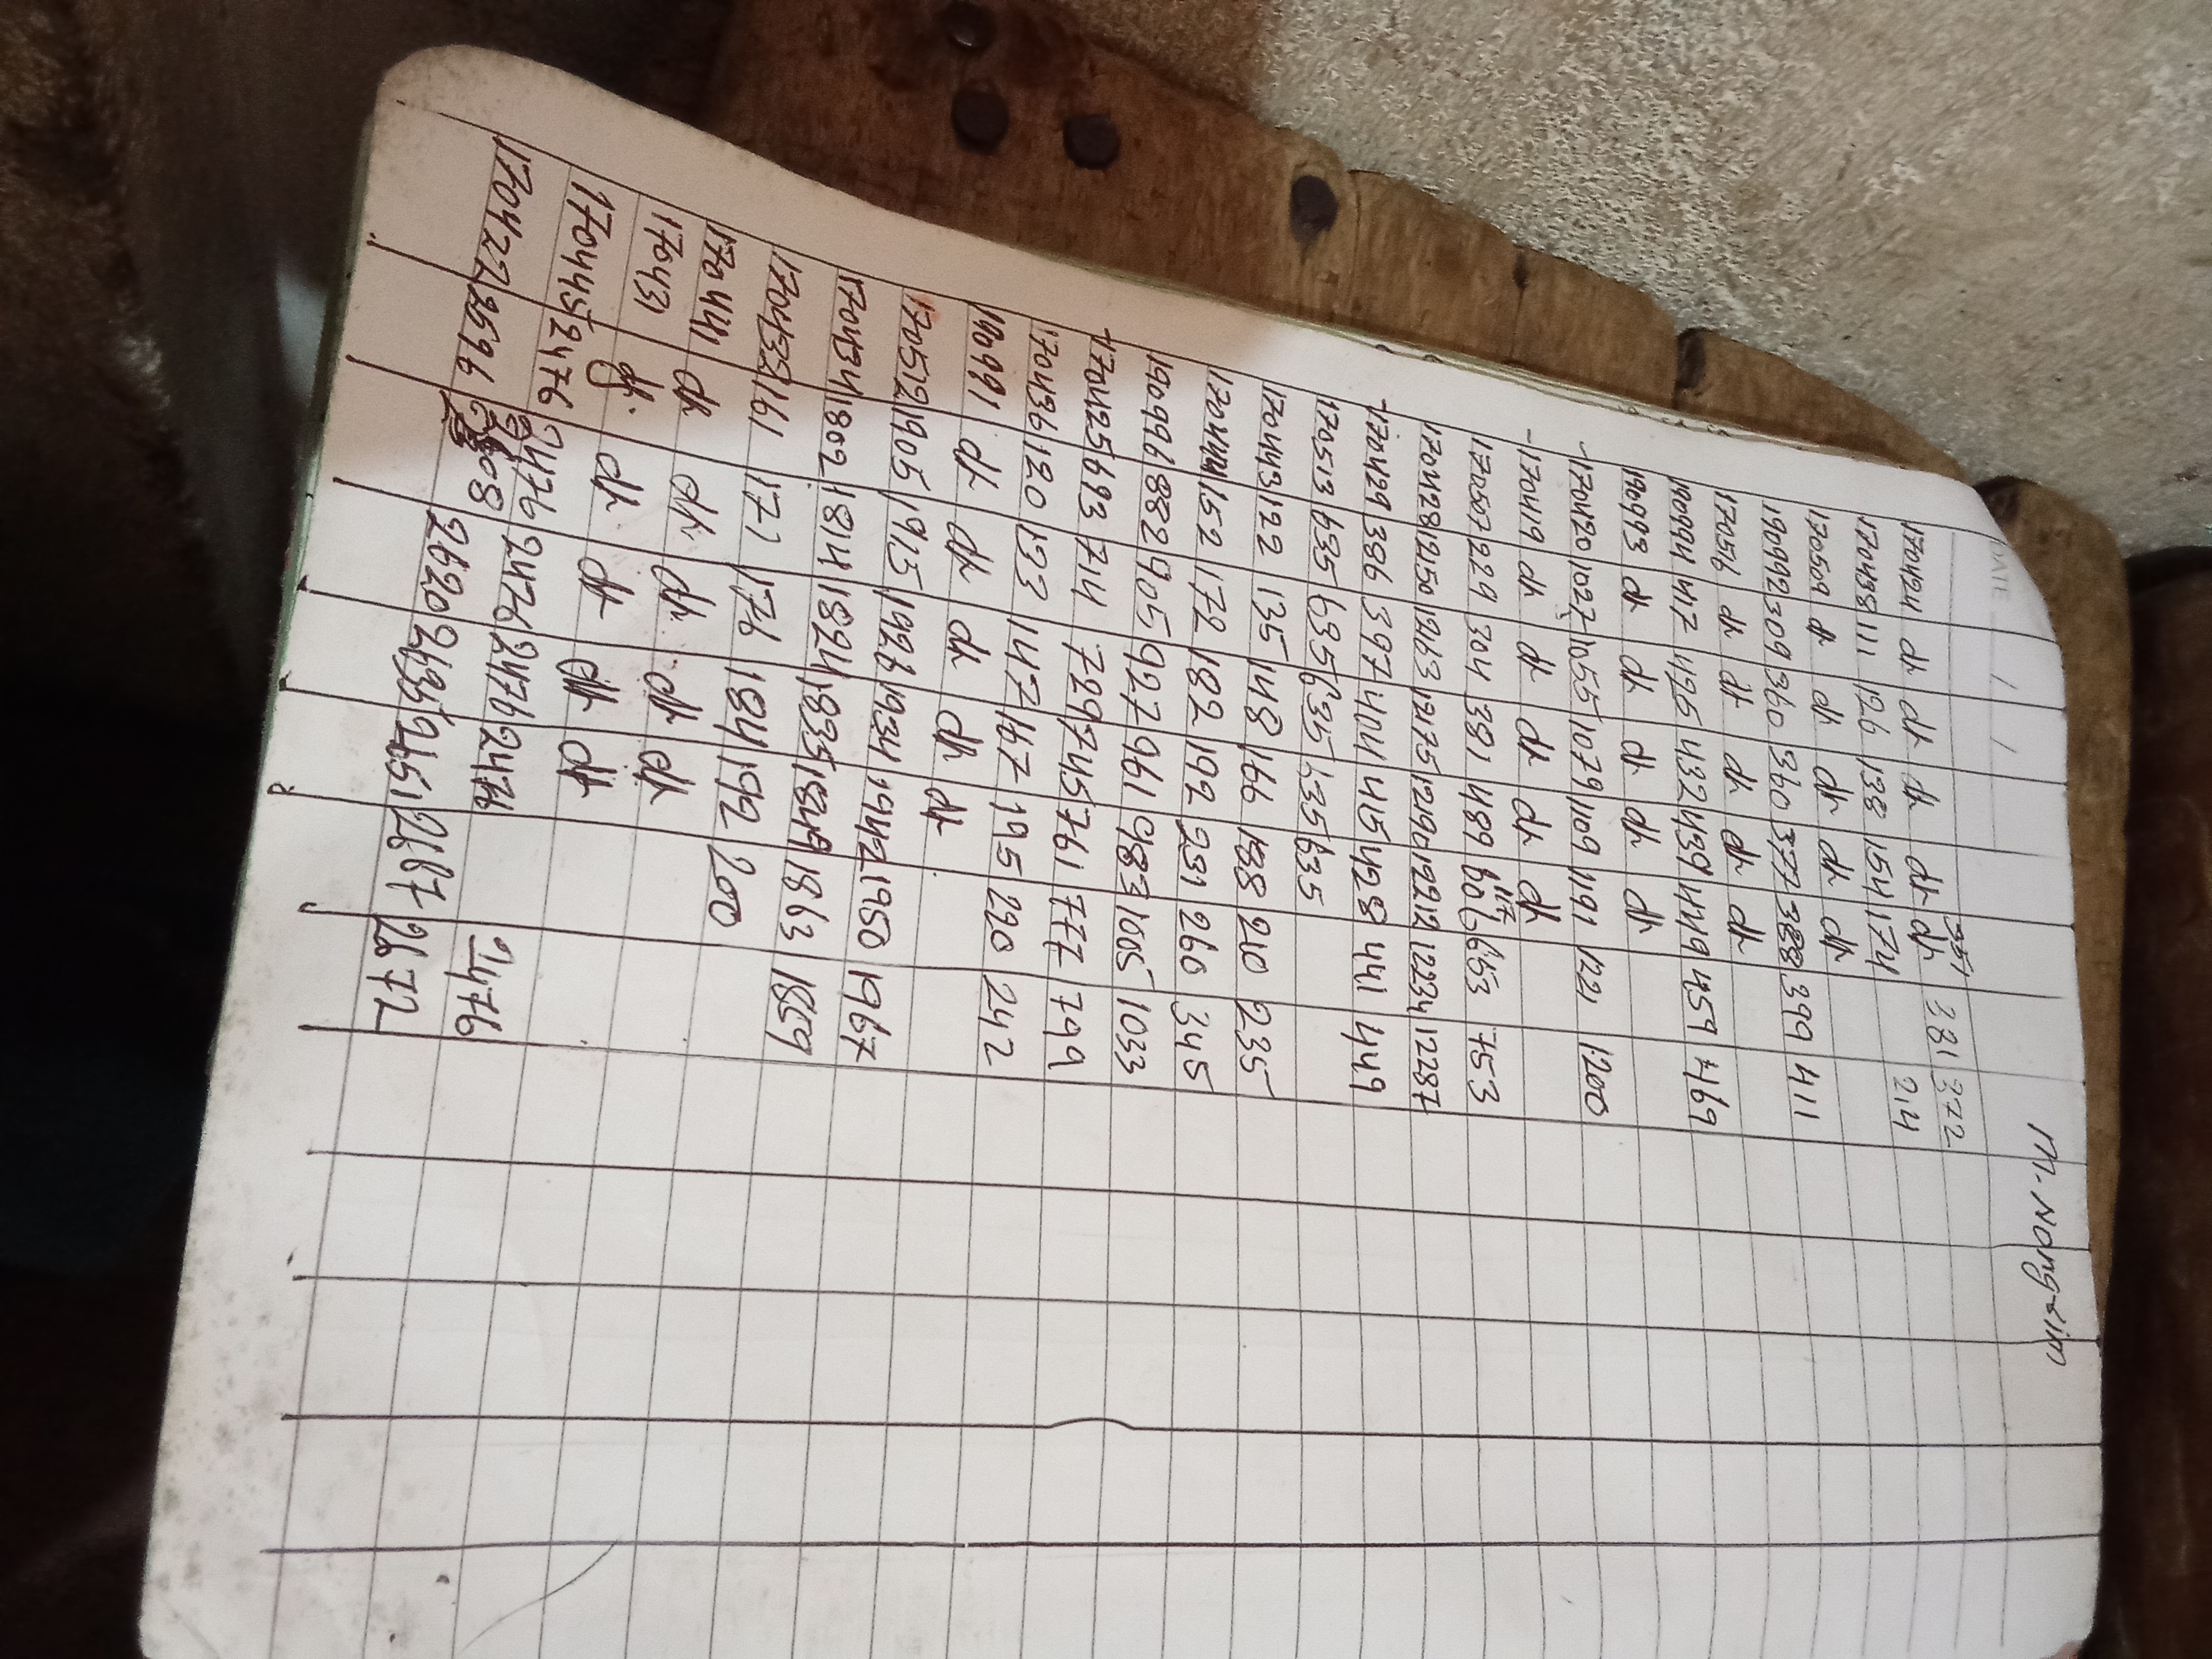 M. Nongsim
DATE / /
351 381 372
170424 dk dk dk dk dk
170438 111 126 138 154 174 214
170509 dk dk dk dk dk
190992 309 360 360 377 388 399 411
170516 dk dk dk dk dk
190994 417 426 432 439 449 459 469
190993 dk dk dk dk dk
170420 1027 1055 1079 1109 1191 1221 1200
170419 dk dk dk dk dk
117
170507 229 304 391 489 606 653 753
170428 12150 12163 12175 12190 12212 12234 12287
170429 386 397 404 415 428 441 449
170513 635 635 635 635 635
170443 122 135 148 166 188 210 235
170444 152 172 182 192 231 260 345
190996 882 905 927 961 983 1005 1033
170425 693 714 729 745 761 777 799
170436 120 133 147 167 195 220 242
190991 dk dk dk dk dk
170512 1905 1915 1926 1934 1942 1950 1967
170434 1802 1814 1824 1835 1849 1863 1869
170432 161 171 176 184 192 200
170441 dk dk dk dk dk
170431 dk dk dk dk dk
170445 2476 2476 2476 2476 2476 2476
170422 2596 2608 2620 2635 2651 2667 2672